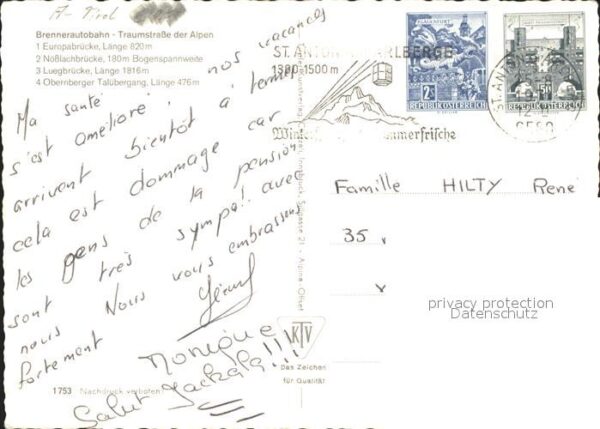 A- Tirol
Brennerautobahn - Traumstraße der Alpen
1 Europabrücke, Länge 820 m
2 Nößlachbrücke, 180 m Bogenspannweite
3 Luegbrücke, Länge 1816 m
4 Obernberger Talübergang, Länge 476 m
Ma santé
s'est améliorée, nos vacances
arrivent bientôt à terme
cela est dommage car
les gens de la pension
sont très sympa! avec
nous Nous vous embrassons
fortement
Gérard
Monique
Salut Jackala!!!
1753 Nachdruck verboten
Innsbruck, Alpine-Offset
KTV
Das Zeichen
für Qualität
ST. ANTON ARLBERG
1300-1500 m
Winter Sommerfrische
KLAGENFURT
2S
REPUBLIK ÖSTERREICH
50
REPUBLIK ÖSTERREICH
ST. ANTON
6580
Famille HILTY René
35
privacy protection
Datenschutz